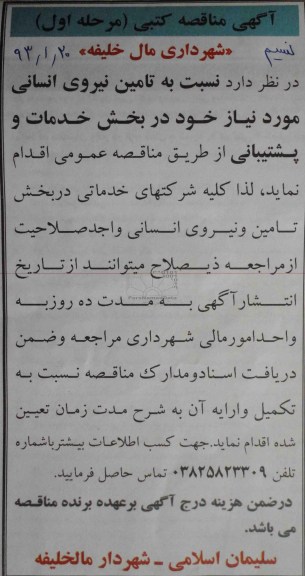 آگهی مناقصه کتبی (مرحله اول)
نسیم
«شهرداری مال خلیفه»
۹۳/۱/۲۰
در نظر دارد نسبت به تامین نیروی انسانی
مورد نیاز خود در بخش خدمات و
پشتیبانی از طریق مناقصه عمومی اقدام
نماید، لذا کلیه شرکتهای خدماتی دربخش
تامین ونیروی انسانی واجدصلاحیت
ازمراجعه ذیصلاح میتوانند از تاریخ
انتشارآگهی به مدت ده روزبه
واحدامورمالی شهرداری مراجعه وضمن
دریافت اسنادومدارک مناقصه نسبت به
تکمیل وارایه آن به شرح مدت زمان تعیین
شده اقدام نماید.جهت کسب اطلاعات بیشترباشماره
تلفن ۰۳۸۲۵۸۲۳۳۰۹ تماس حاصل فرمایید.
درضمن هزینه درج آگهی برعهده برنده مناقصه
می باشد.
سلیمان اسلامی ـ شهردار مالخلیفه